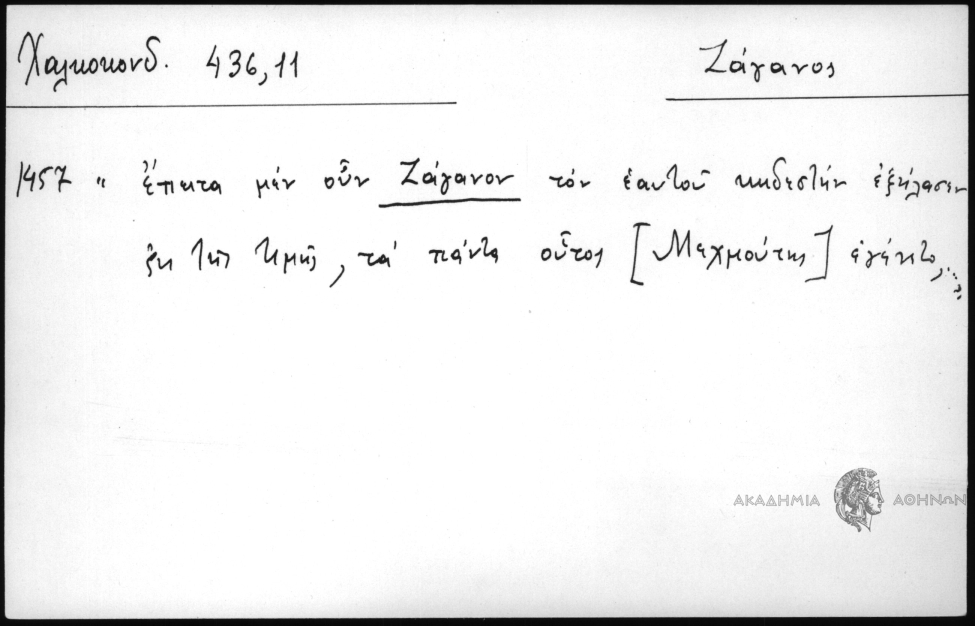 Χαλκοκονδ. 436,11
Ζάγανος
1457 " ἔπειτα μὲν οὖν Ζάγανον τὸν ἑαυτοῦ κηδεστὴν ἐξήλασεν
ἐκ τῆς τιμῆς, τὰ πάντα οὗτος [Μεχμούτης] ἐγένετο,...."
ΑΚΑΔΗΜΙΑ ΑΘΗΝΩΝ